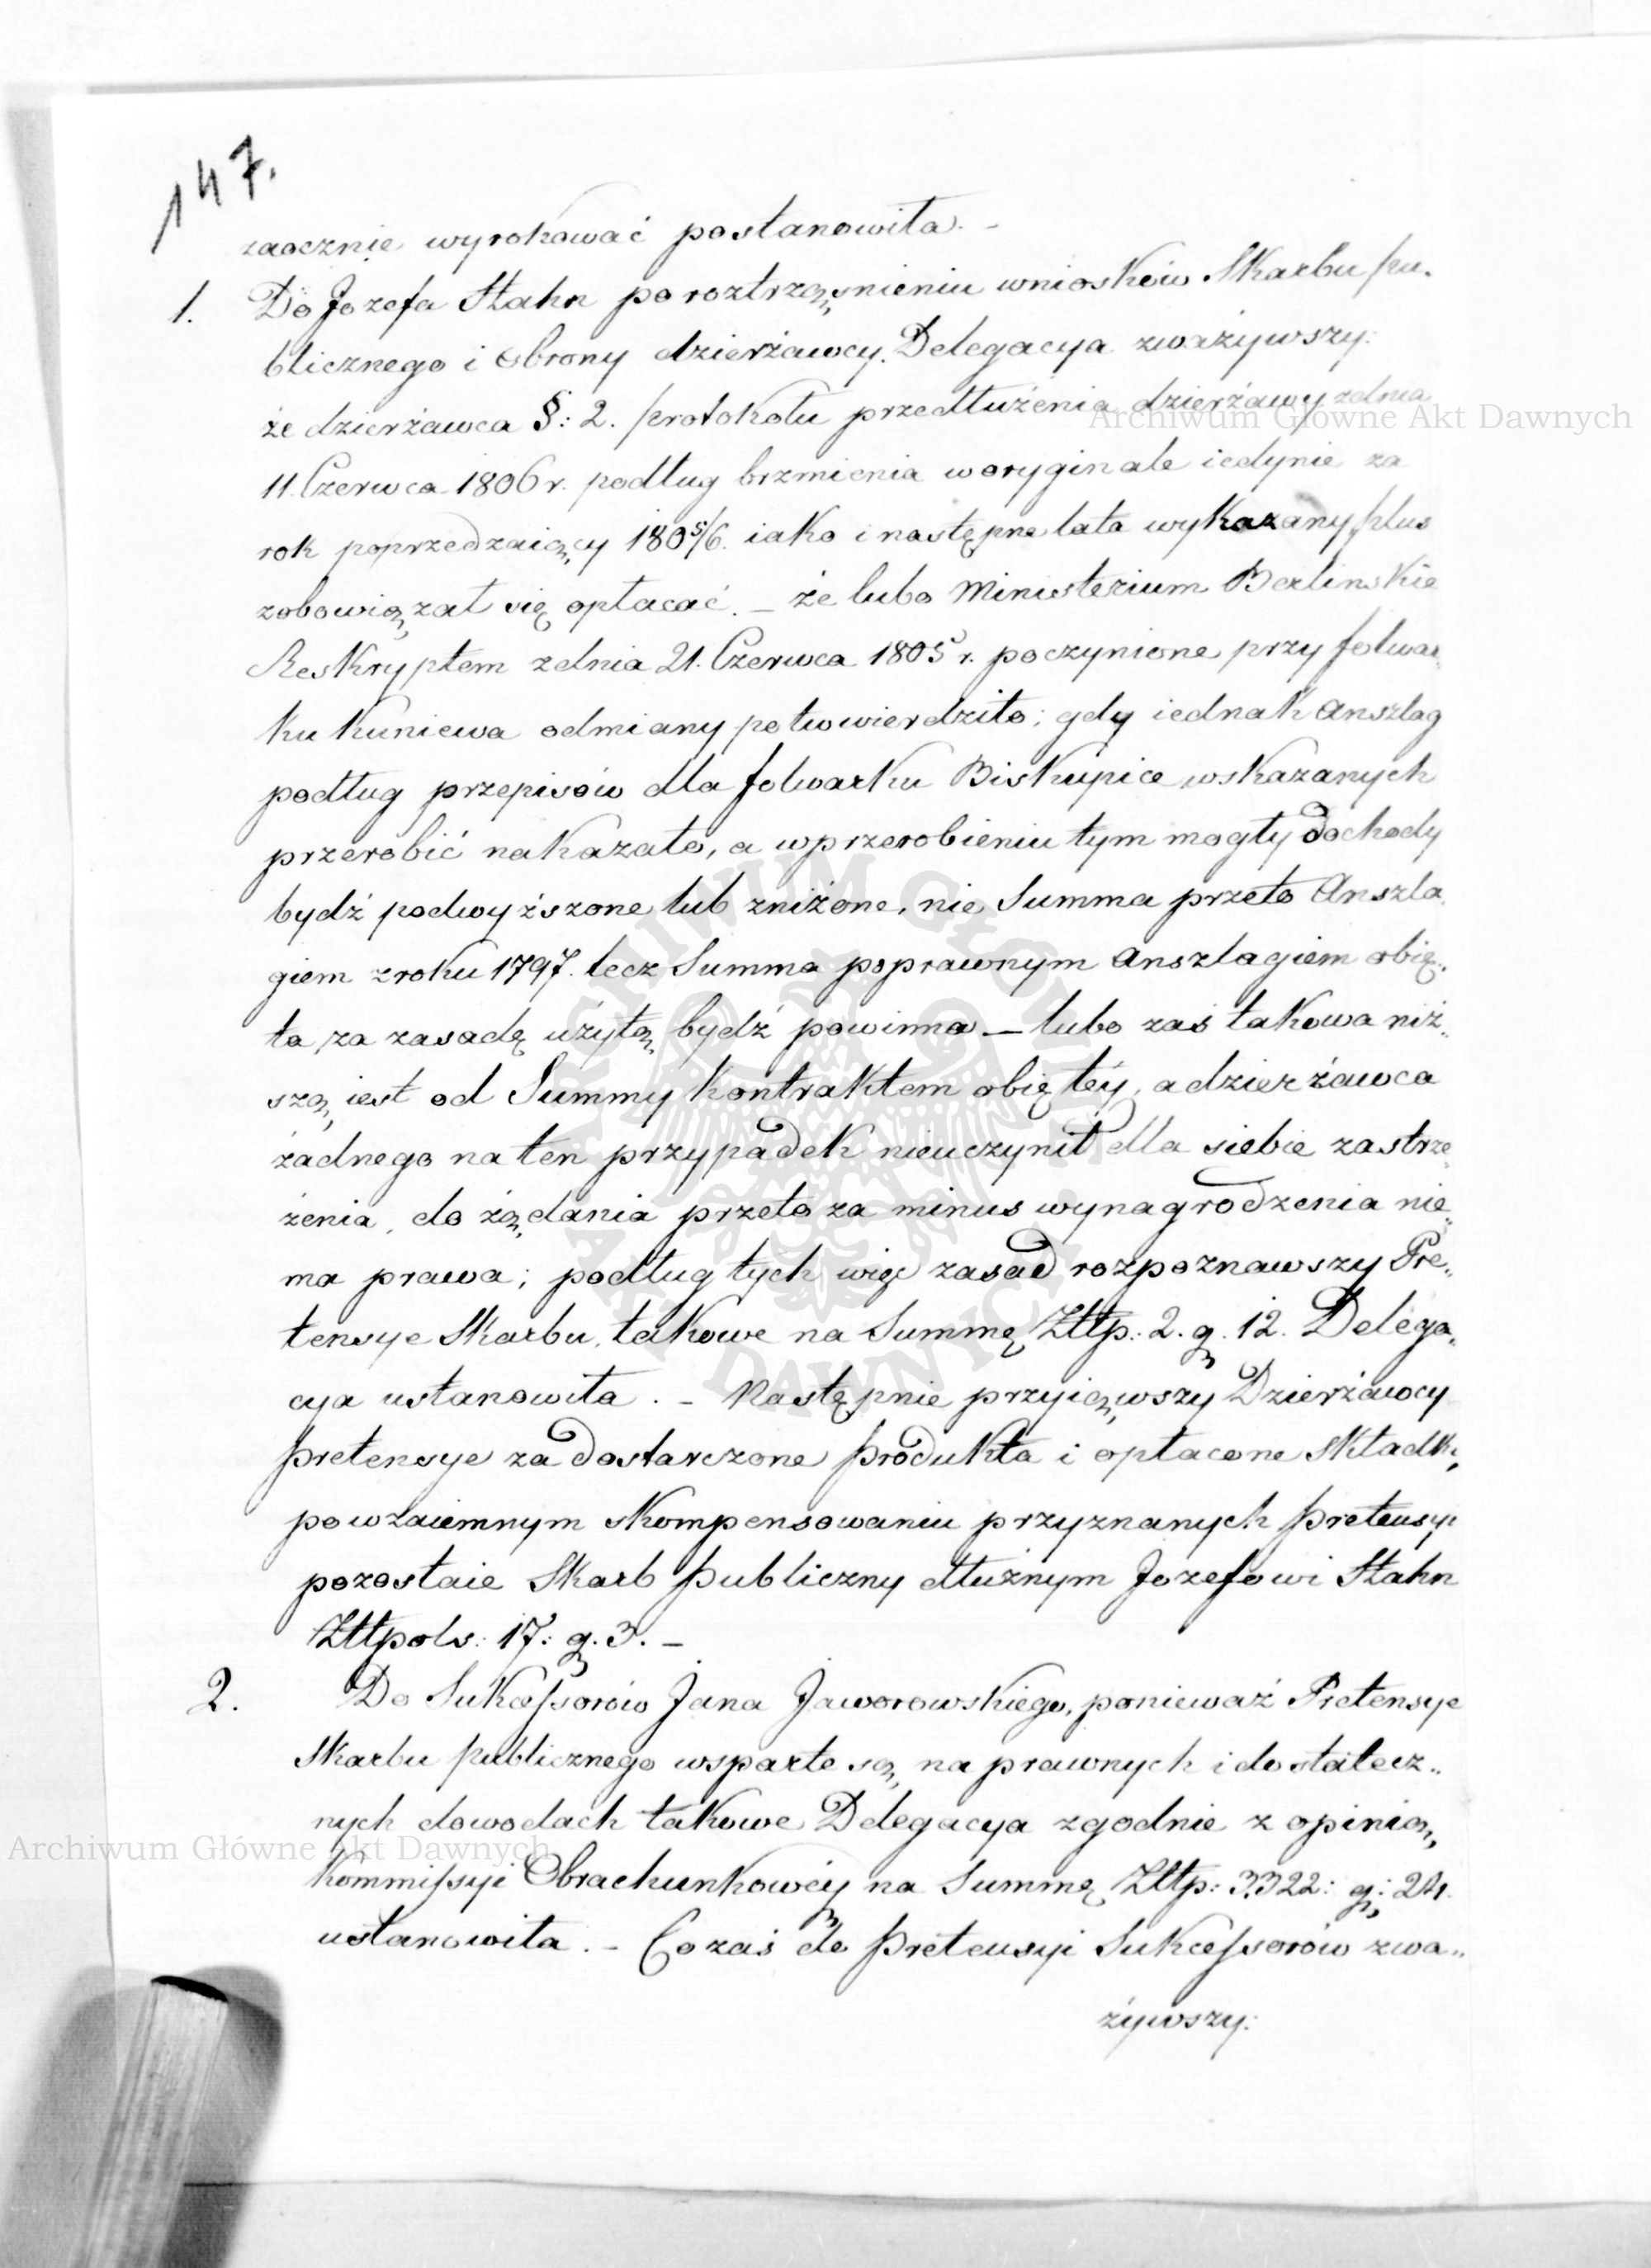 147.
zaocznie wyrokować postanowiła. –
1. Do Jozefa Stahn po roztrząśnieniu wniosków Skarbu pu-
blicznego i obrony dzierżawcy. Delegacya zważywszy:
że dzierżawca §: 2. protokołu przedłużenia dzierżawy z dnia
11. Czerwca 1806 r. podług brzmienia w oryginale iedynie za
rok poprzedzaiący 180 5/6. iako i następne lata wykazany plus
zobowiązał się opłacać. – że lubo Ministerium Berlinskie
Reskryptem z dnia 21. Czerwca 1805 r. poczynione przy folwar„
ku Kuniewa odmiany potwowierdziło; gdy iednak Anszlag
podług przepisów dla folwarku Biskupice wskazanych
przerobić nakazało, a w przerobieniu tym mogły dochody
bydź podwyższone lub zniżone, nie Summa przeto Anszla„
giem z roku 1797. lecz Summa poprawnym Anszlagiem obię„
ta, za zasadę użytą bydź powinna – lubo zaś takowa niż„
szą iest od Summy Kontraktem obiętéy, a dzierżawca
żadnego na ten przypadek nieuczynił dla siebie zastrze„
żenia, do żądania przeto za minus wynagrodzenia nie„
ma prawa; podług tych więc zasad rozpoznawszy Pre„
tensye Skarbu, takowe na Summę Złłp: 2. g. 12. Delega„
cya ustanowiła. – Następnie przyiąwszy Dzierżawcy
pretensye za dostarczone produkta i opłacone składki,
po wzaiemnym skompensowaniu przyznanych pretensyi
pozostaie Skarb publiczny dłużnym Jozefowi Stahn
Złłpols: 17: g. 3. –
2. Do Sukcessorów Jana Jaworowskiego, ponieważ Pretensye
Skarbu publicznego wsparte są na prawnych i dostatecz„
nych dowodach takowe Delegacya zgodnie z opinią
Kommissyi Obrachunkowéy na Summę Złłp: 3322: g: 24.
ustanowiła. – Co zaś do pretensyi Sukcessorów zwa„
żywszy:
Archiwum Główne Akt Dawnych
ARCHIWUM GŁÓWNE AKT DAWNYCH
Archiwum Główne Akt Dawnych